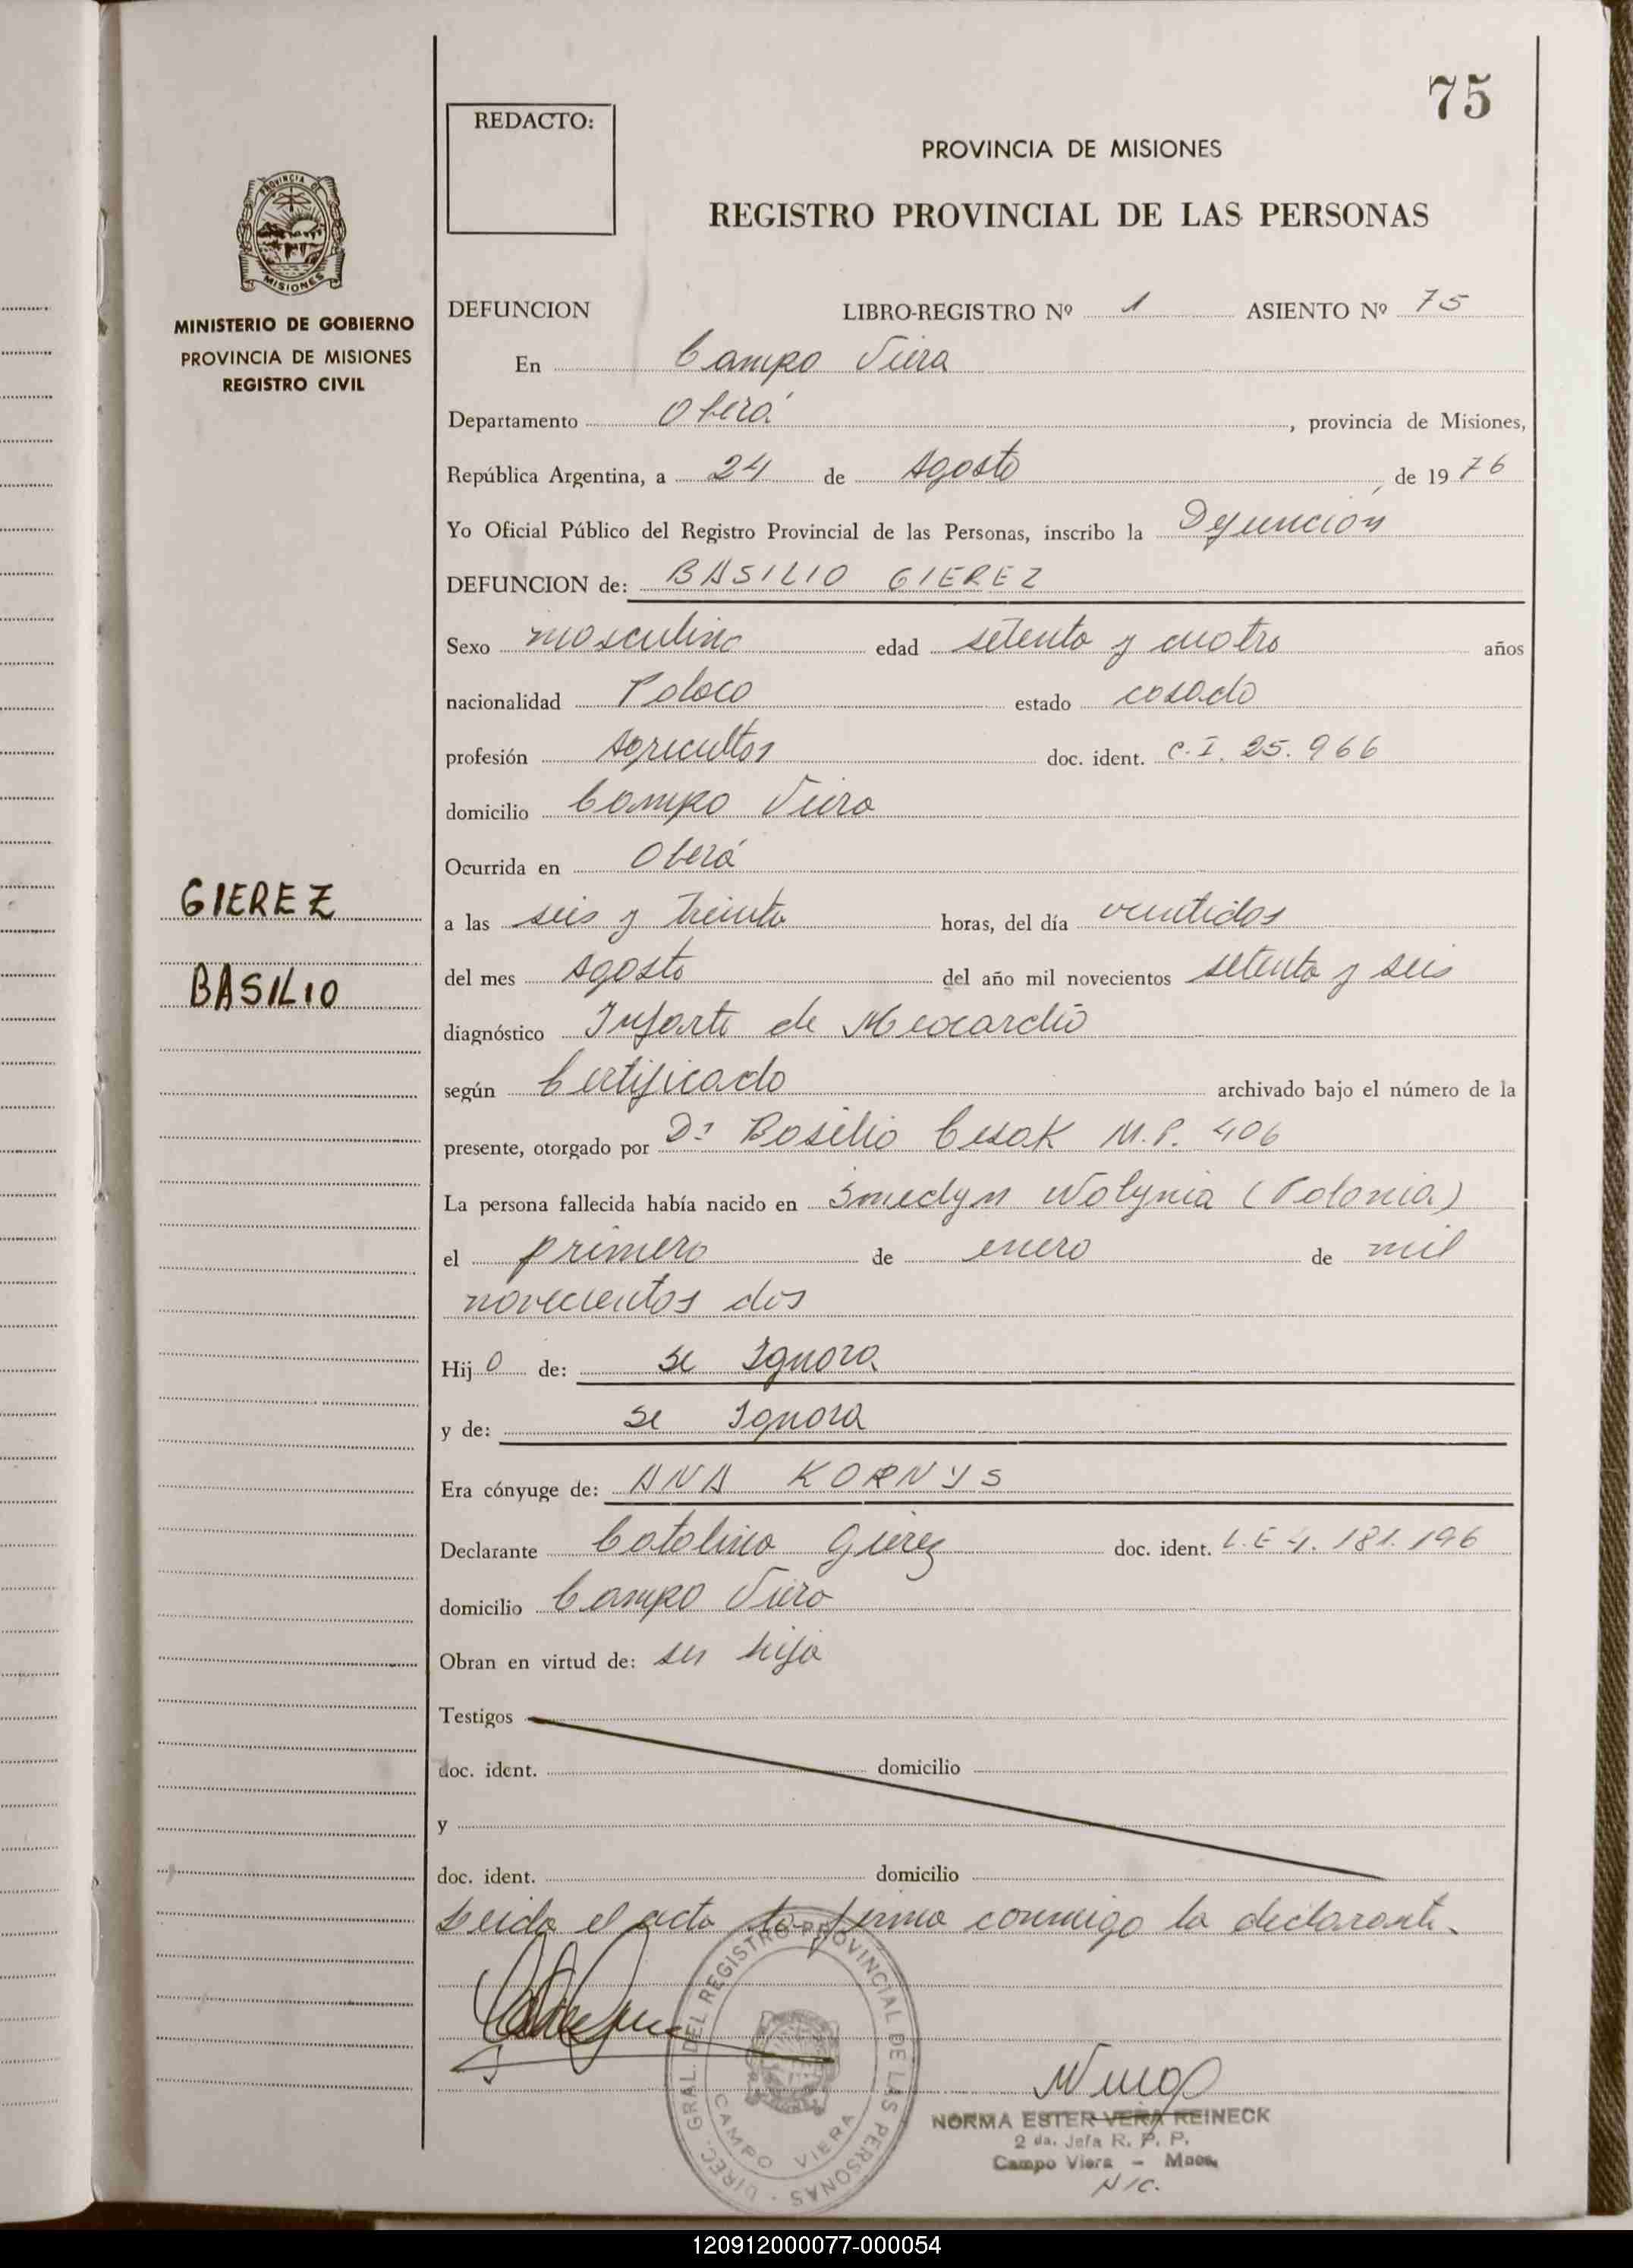 75
REDACTO:
PROVINCIA DE MISIONES
REGISTRO PROVINCIAL DE LAS PERSONAS
PROVINCIA DE
MISIONES
MINISTERIO DE GOBIERNO
PROVINCIA DE MISIONES
REGISTRO CIVIL
DEFUNCION LIBRO-REGISTRO Nº 1 ASIENTO Nº 75
En Campo Viera
Departamento Oberá, provincia de Misiones,
República Argentina, a 24 de Agosto de 1976
Yo Oficial Público del Registro Provincial de las Personas, inscribo la Defunción
DEFUNCION de: BASILIO GIEREZ
Sexo masculino edad setenta y cuatro años
nacionalidad Polaco estado casado
profesión Agricultor doc. ident. C.I. 25.966
domicilio Campo Viera
Ocurrida en Oberá
GIEREZ
BASILIO
a las seis y treinta horas, del día ventidos
del mes Agosto del año mil novecientos setenta y seis
diagnóstico Infarto de Meocardio
según Certificado archivado bajo el número de la
presente, otorgado por Dr Basilio M.P. 406
La persona fallecida había nacido en Smedyn Wolynia (Polonia)
el primero de enero de mil
novecientos dos
Hijo de: se Ignora
y de: se Ignora
Era cónyuge de: ANA KORNYS
Declarante Catalina Gierez doc. ident. L.E 4.181.196
domicilio Campo Viera
Obran en virtud de: su hija
Testigos
doc. ident. domicilio
y
doc. ident. domicilio
Leida el acta la firma conmigo la declarante.
DIREC. GRAL. DEL REGISTRO PROVINCIAL DE LAS PERSONAS
CAMPO VIERA
NORMA ESTER VERA REINECK
2 da. Jefa R. P. P.
Campo Viera - Mnes.
120912000077-000054